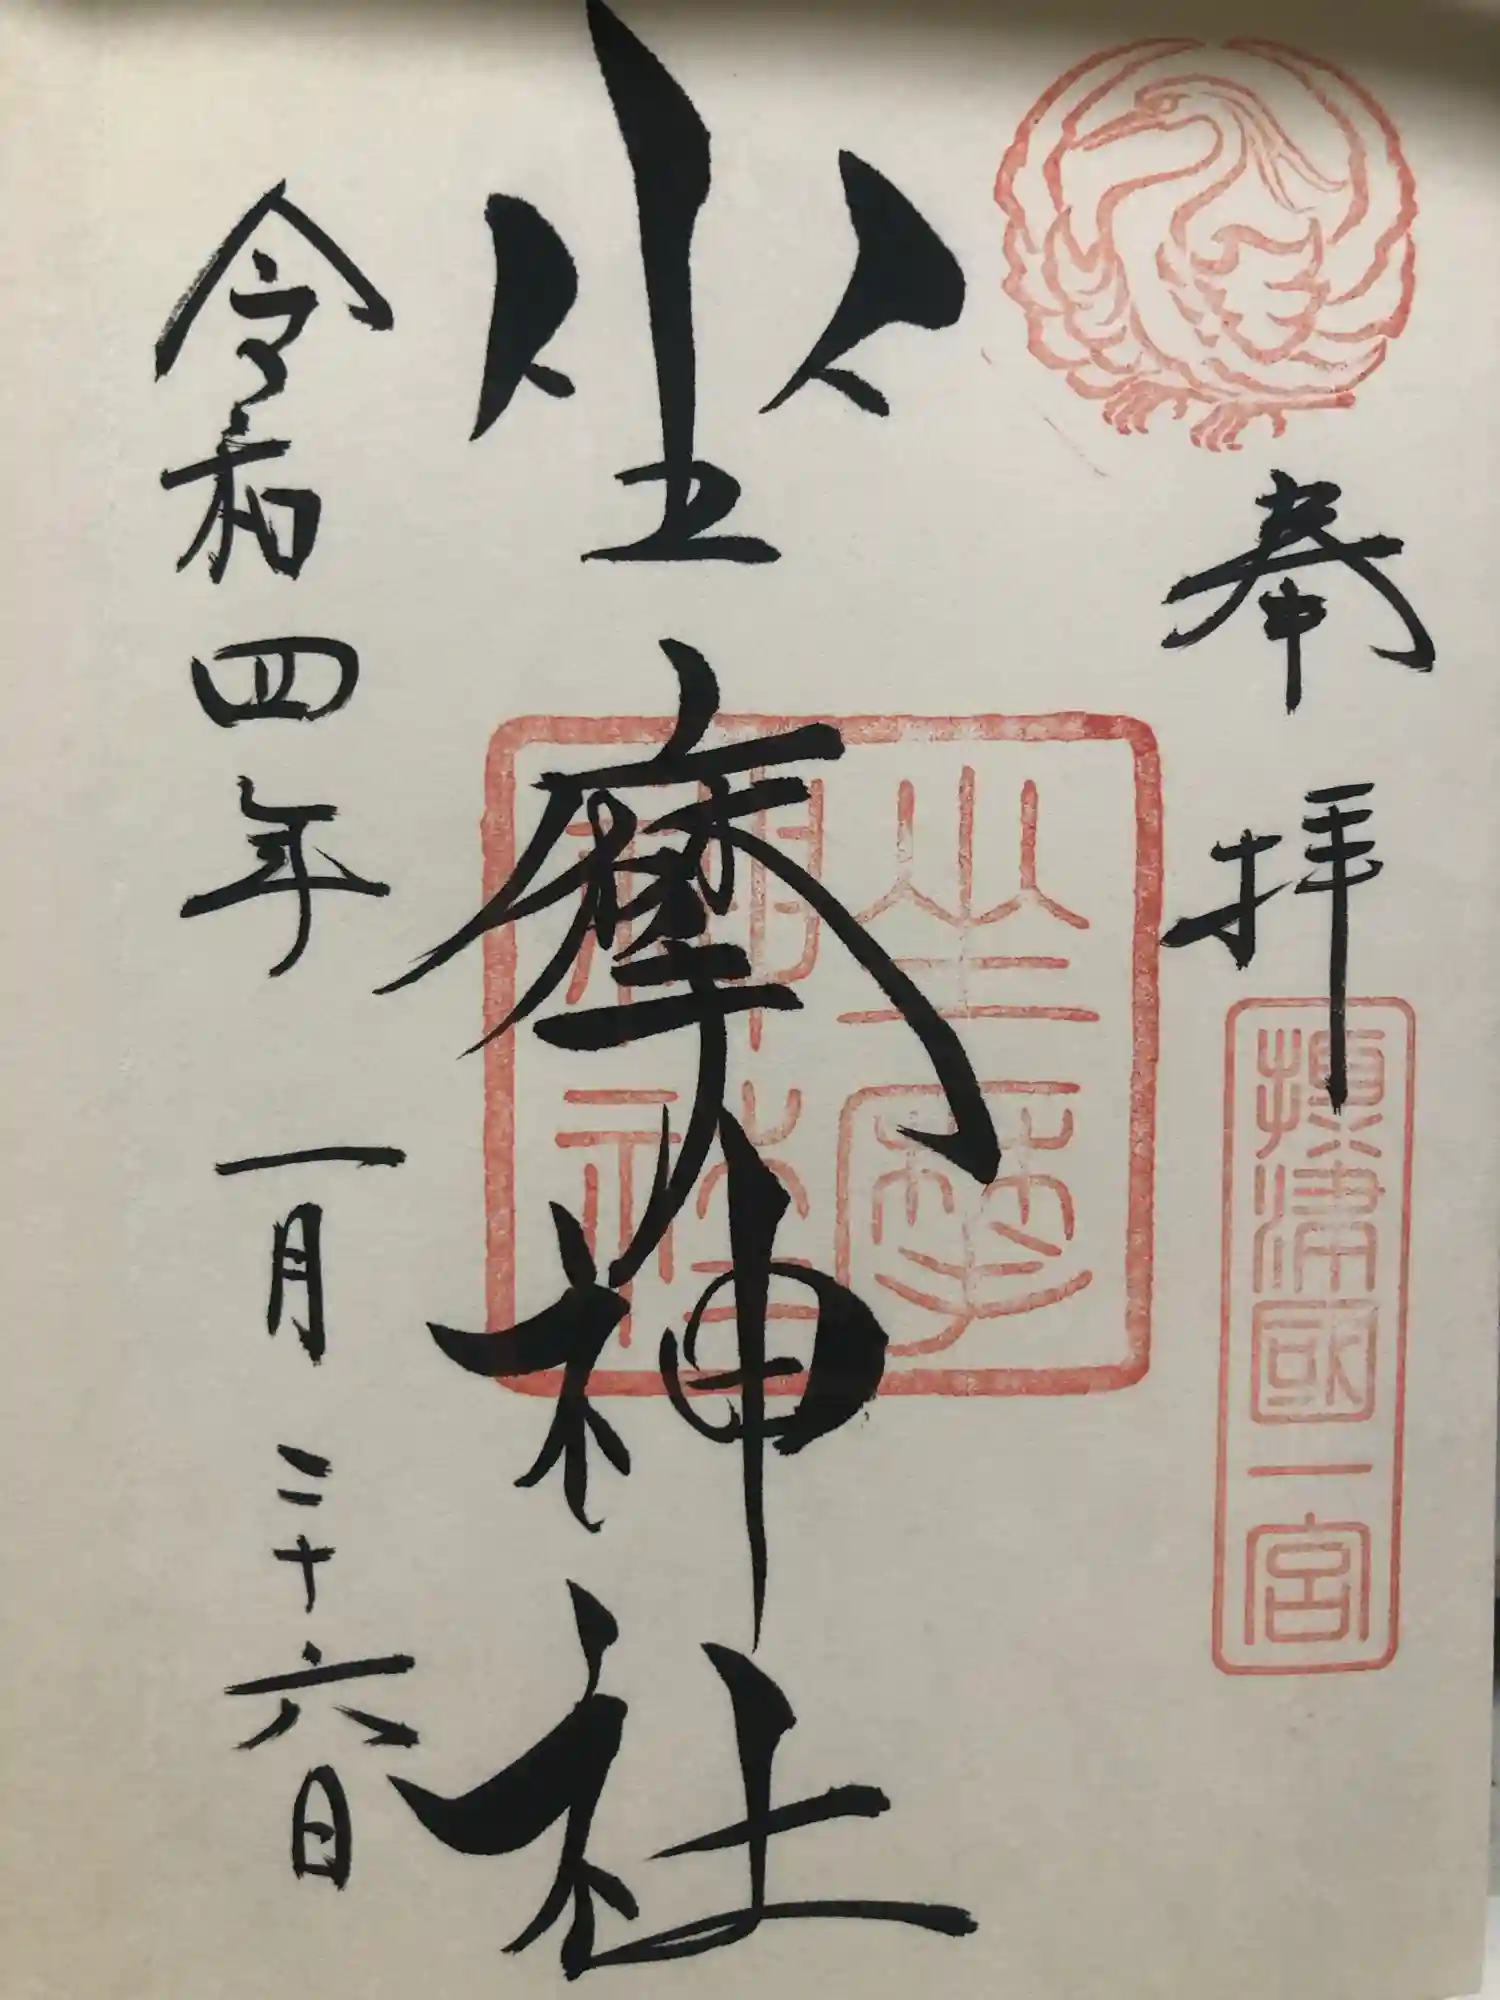 奉拝
攝津國一宮
坐摩神社
坐摩神社
令和四年一月二十六日